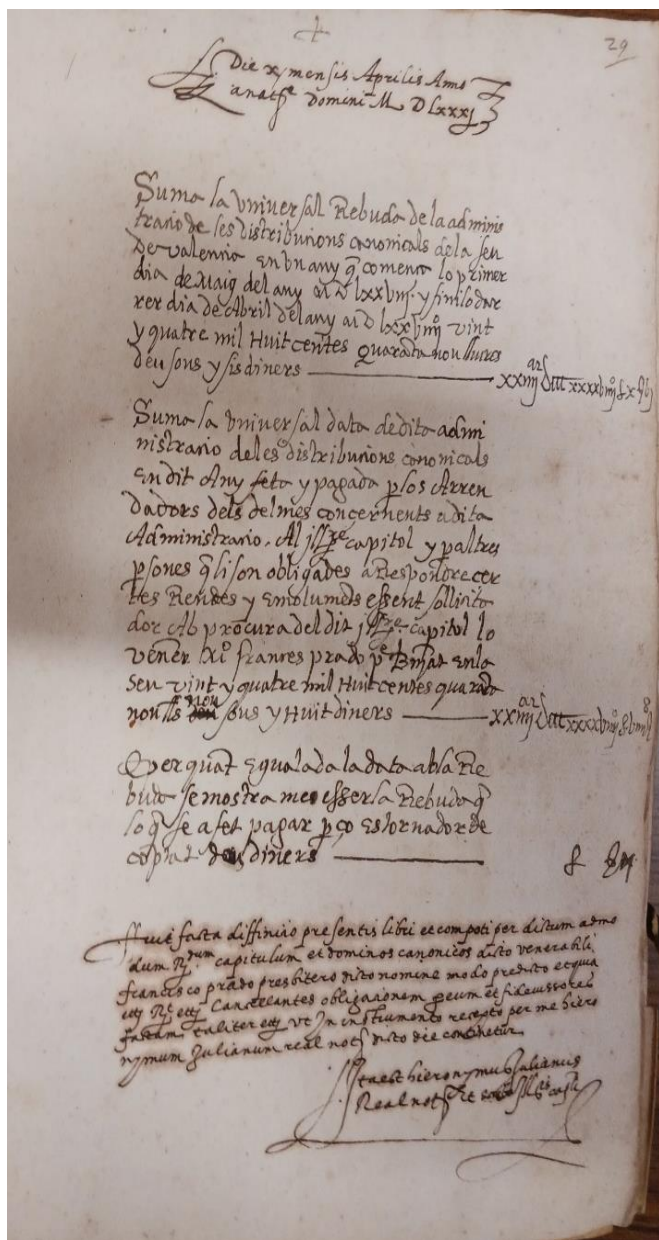 29
Die xj mensis Aprilis Anno
a natte Domini M D Lxxxj
Suma la vniversal Rebuda de la adminis
tratio de les distribucions canonicals de la seu
De valencia En vn any q̃ comença lo primer
dia de Maig del any M D lxxviij. y finí lo dar
rer dia de Abril del any M D lxxviiijº vint
y quatre mil Huit centes quarāta nou lliures
deu sous y sis diners
Suma la vniversal data de dita admi
nistratio de les distribucions canonicals
En dit Any feta y pagada p los Arren
dadors dels delmes concernents a dita
Administratio. Al jllre capitol y p altres
psones q̃ li son obligades a Respondre cer
tes Rendes y Emolumēts essent sollicita
dor Ab procura del dit jllre. capitol lo
vener. Frances prado En la
Seu vint y quatre mil Huit centes quarāta
nou lls nou sous y Huit diners
E per quāt Egualada la data ab la Re
buda se mostra mes esser la Rebuda q̃
lo q̃ se a fet pagar p ço Es tornador de
diners
Fuit facta diffinitio presentis libri et compoti per dictum admo
dum Rdum capitulum et dominos canonicos dicto venerabili
francisco prado presbitero dicto nomine modo predicto et quia
etcj Rt etcj Cancellantes obligationem p eum et fideiussores
factam taliter etcj vt Jn instrumento recepto per me hiero
nymum Julianum real nots dicto die continetur
Jta est hieronymus Julianus
Real nots